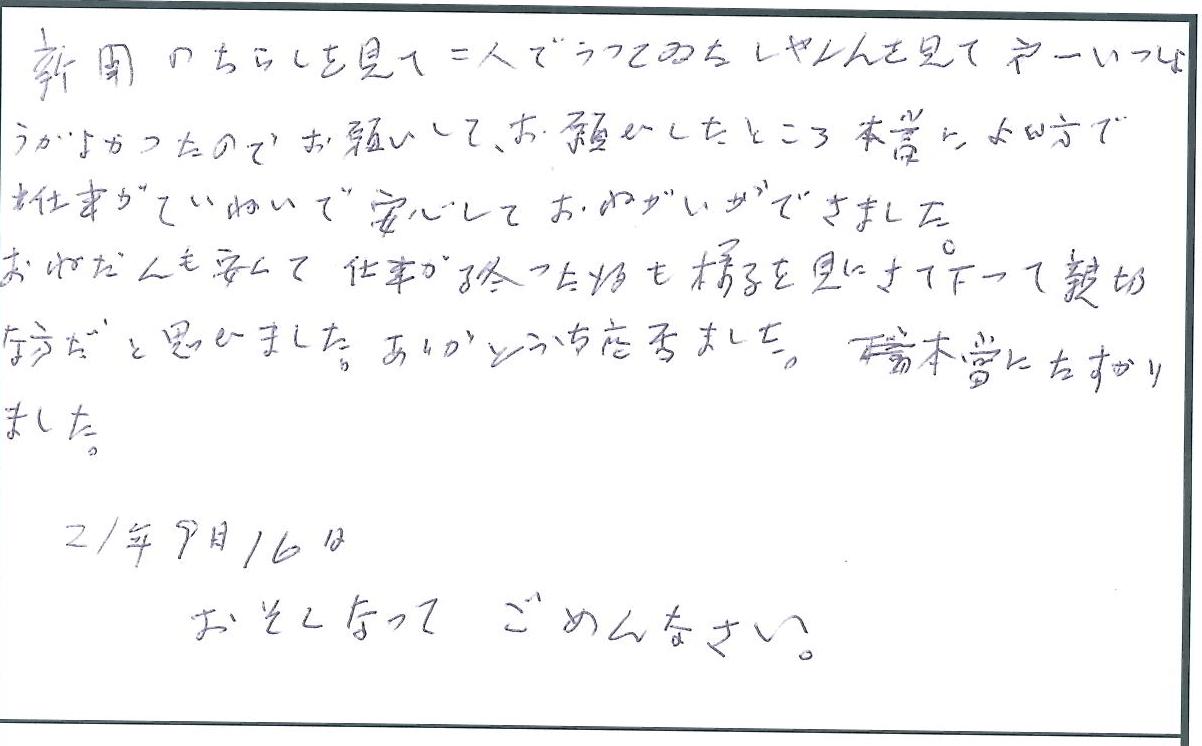 新聞のちらしを見て二人でうつてゐたしやしんを見て第一いつしよ
うがよかつたのでお願いして、お願ひしたところ本當によい方で
お仕事がていねいで安心しておねがいができました。
おねだんも安くて仕事が終つた後も様子を見にきて下つて親切
な方だと思ひました。ありがとうち座居ました。本當にたすかり
ました。
21年9月16日
おそくなって ごめんなさい。